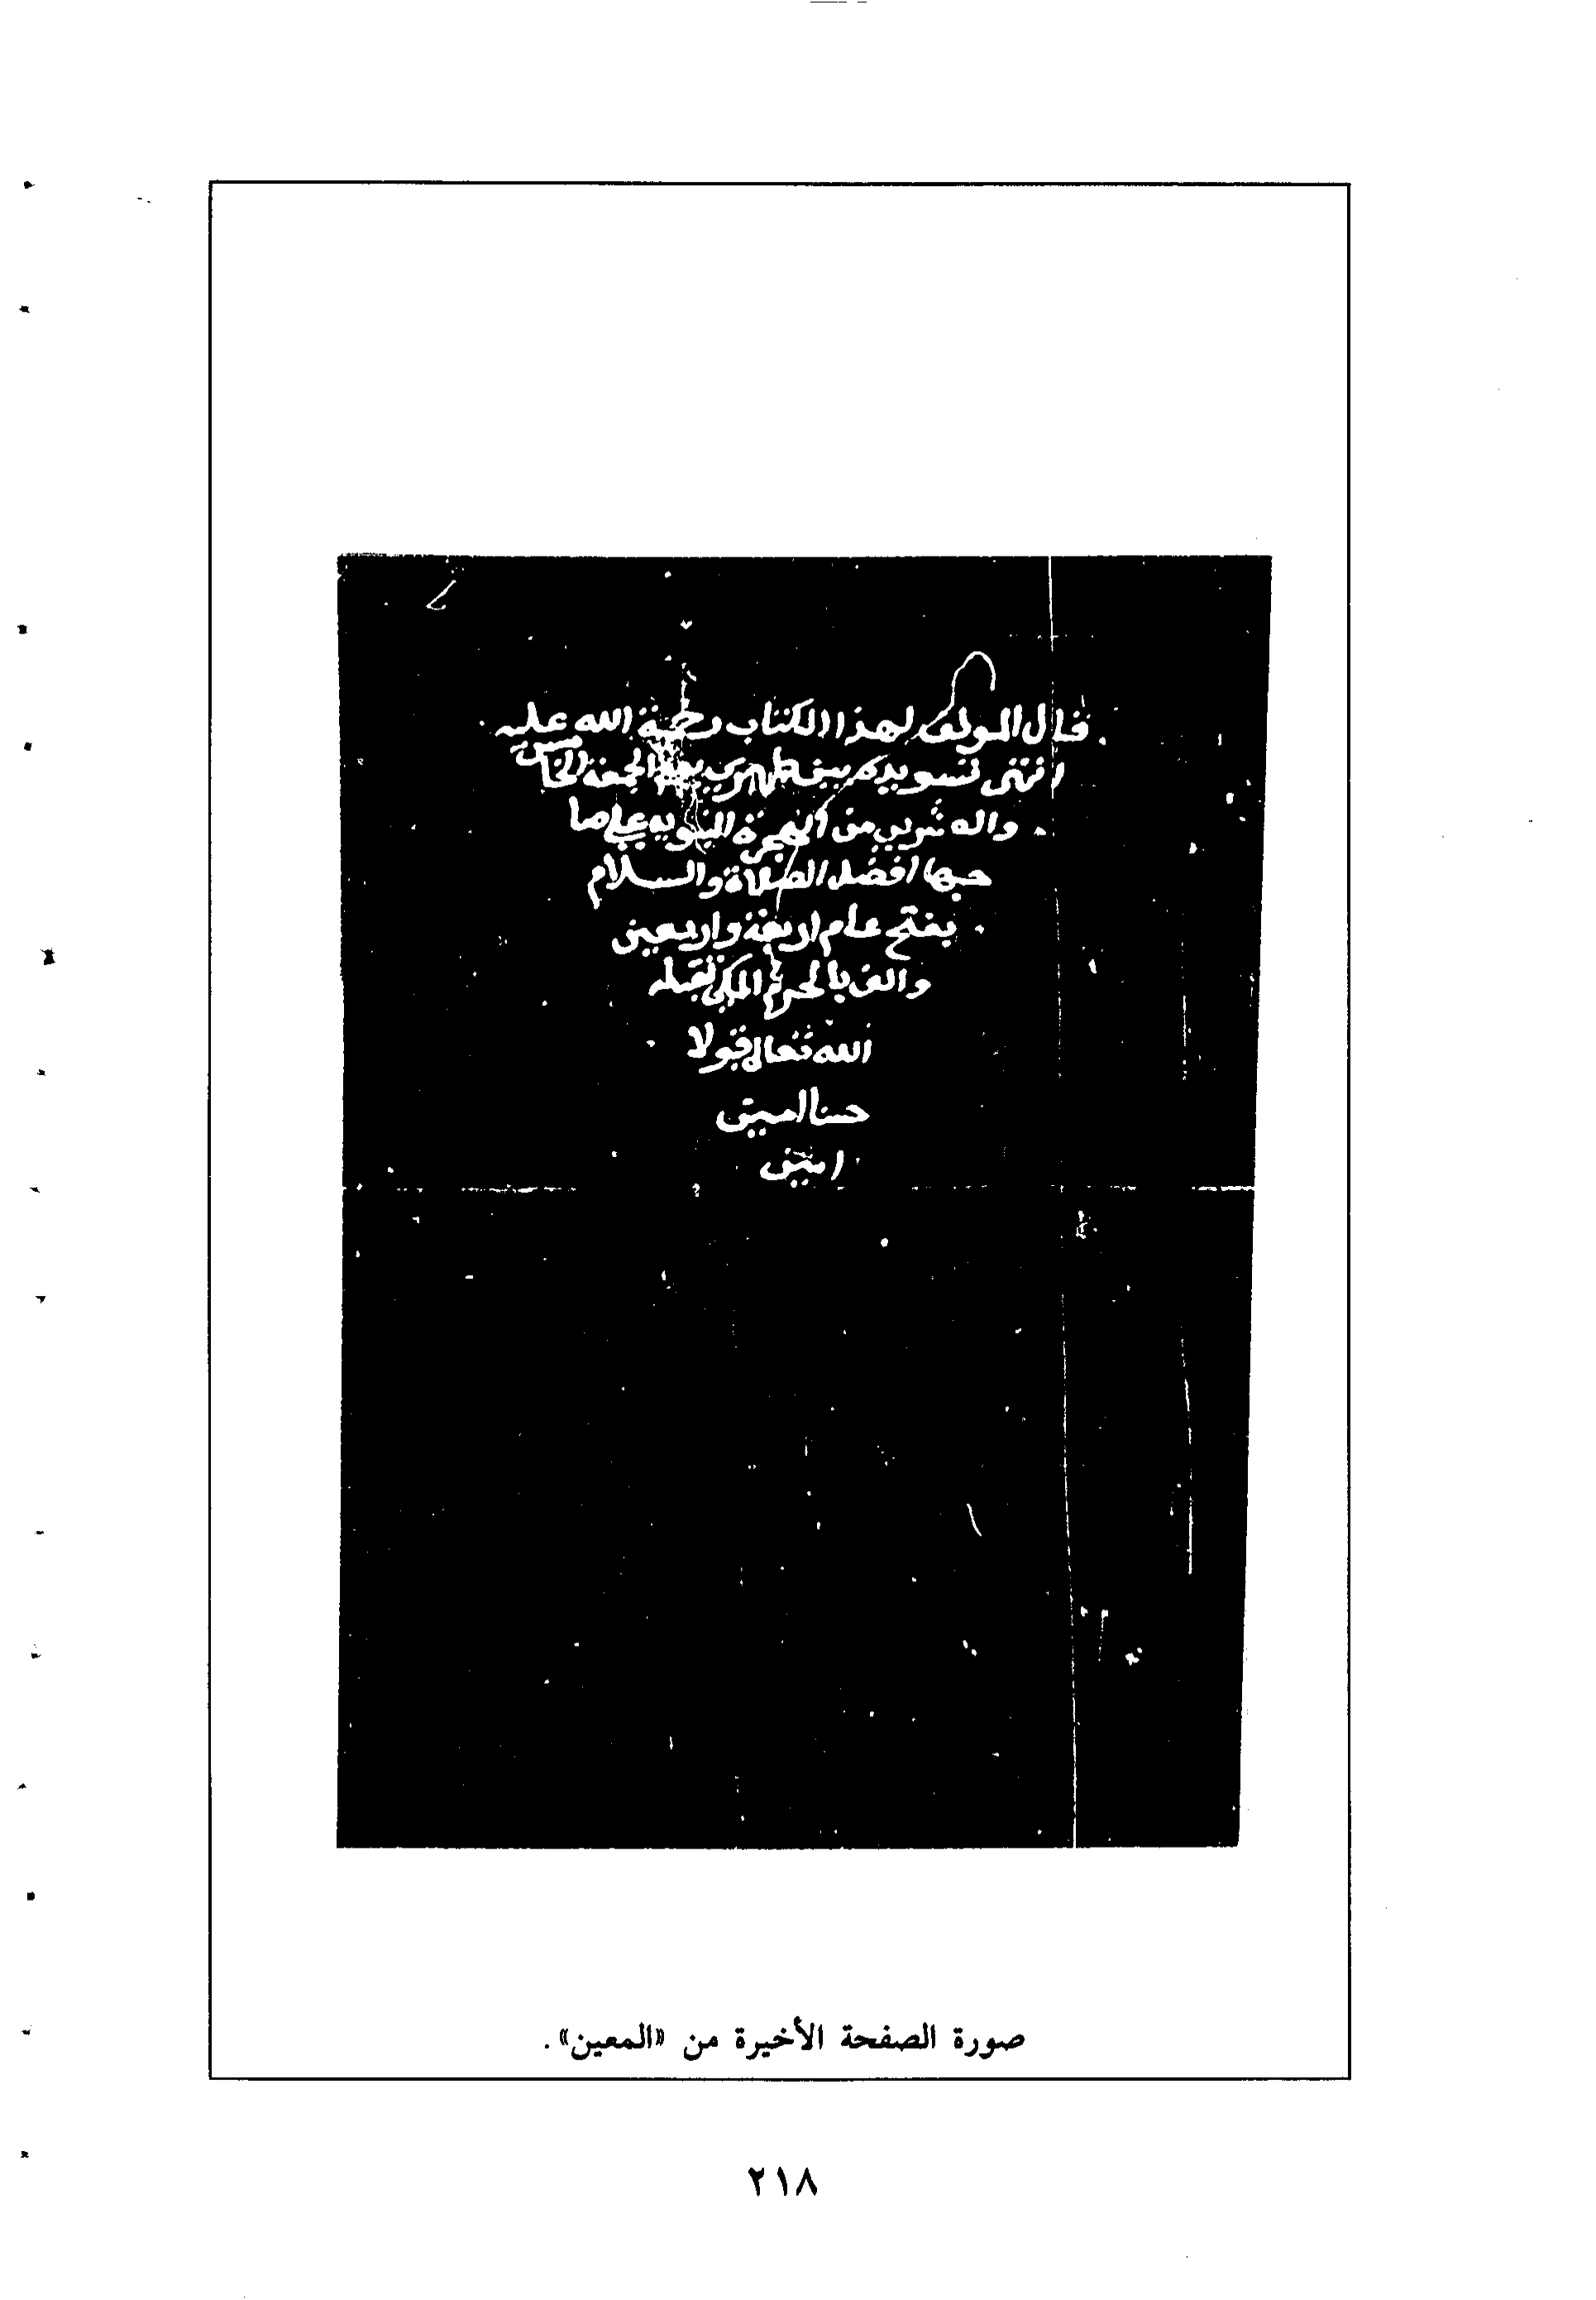 قال المولف لهذا الكتاب رحمة الله عليه
انتهى تسويده بين ظهري يوم الجمعة الخامس
والعشرين من الهجرة النبوية على صا
حبها افضل الصلاة والسلام
بفتح عام اربعة واربعين
والف بالحرم المكي تقبله
الله تعالى قبولا
حسنا امين
امين
صورة الصفحة الأخيرة من «المعين».
٢١٨